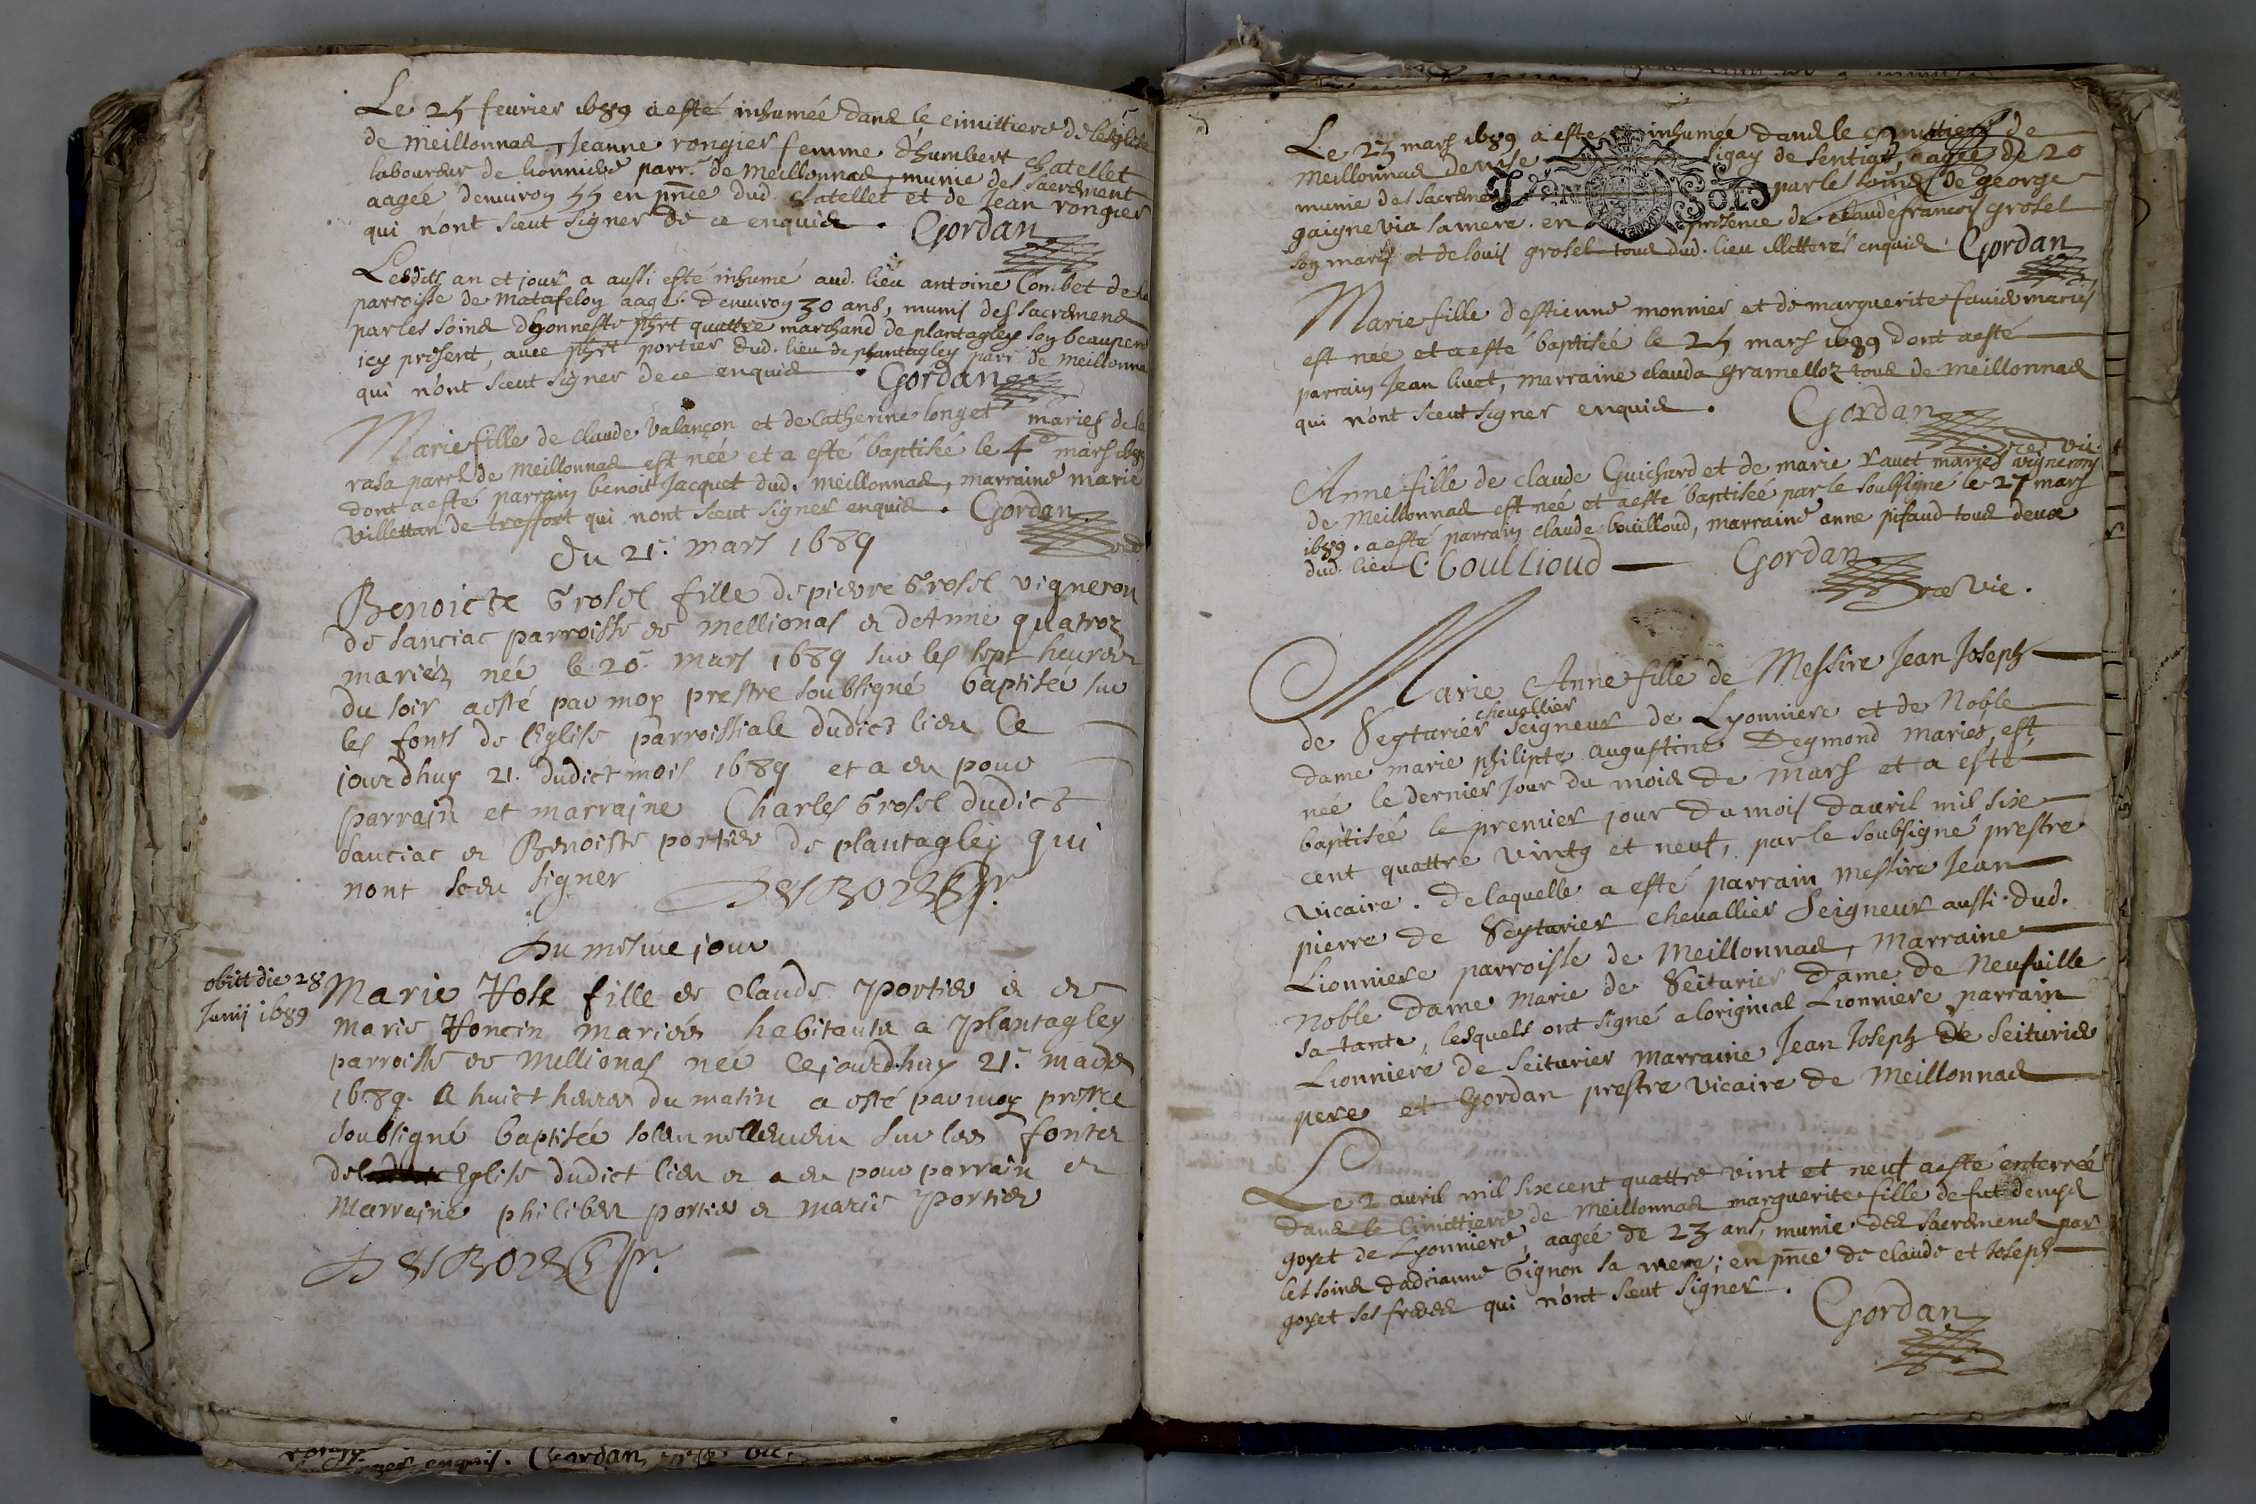 Le 25 feurier 1689 a esté inhumée dans le cimittiere de leglise
de Meillonnas, Jeanne rongier femme d'humbert Chatellet
laboureur de lionniere parr. de Meillonnas, munie des sacrement
aagée denuiron 55 en pnce dud. Chatellet et de Jean rongier
qui n'ont sceut signer de ce enquis. Gordan
Lesdits an et jour a aussi esté inhumé aud. lieu antoine Combet de la
parroisse de Matafeloy aagé denuiron 30 ans, munis des sacremens
par les soins dhonneste phrt quattre marchand de plantagley son beaupere
icy present, auec phrt portier dud. lieu de plantagley parr de Meillonna
qui n'ont sceut signer de ce enquis. Gordan
Marie fille de Claude Valançon et de Catherine longet maries de la
rasa parr. de Meillonnas est née et a esté baptisée le 4e mars 1689
dont a esté parrain benoit Jacquet dud. Meillonnas, marraine marie
Villettan de treffort qui n'ont sceut signer enquis. Gordan
Du 21. mars 1689
Benoicte Grosel fille de pierre Grosel vigneron
de Sanciac parroisse de Mellionas et de Anne quatroz
mariéz née le 20. mars 1689 sur les sept heures
du soir a esté par moy prestre soubsigné baptisée sur
les fonts de l'Eglise parroissiale dudict lieu Ce
jourdhuy 21. dudict mois 1689 et a eu pour
parrain et marrayne Charles Grosel dudict
Sanciac et Benoiste portier de plantagley qui
nont sceu signer
Du mesme jour
obiit die 28
Junij 1689
Marie Rose fille de Claude Portier et de
Marie Roncin mariées habitants a Plantagley
parroisse de Mellionas née Cejourdhuy 21. mars
1689. A huict heures du matin a esté par moy prestre
soubsigné baptisée solennellement sur les fonts
de Eglise dudict lieu et a eu pour parrain et
Marraine philibert portier et Marie Portier
Le 23 mars 1689 a esté inhumée dans le cimittiere de
Meillonnas denise ligay de Sentias, aagée de 20
munie des sacremens par les soins de george
gaigne via sa mere. en presence de Claude francois grosel
son mary et de louis grosel tous dud. lieu illetteres enquis Gordan
SOLS
Marie fille d'estienne monnier et de marguerite fauie maries
est née et a esté baptisée le 25 mars 1689 dont a esté
parrain Jean liuet, marraine clauda gramelloz tous de Meillonnas
qui n'ont sceut signer enquis. Gordan
Anne fille de Claude Guichard et de marie rauet mariés vignerons
de Meillonnas est née et a esté baptisée par le soubsigné le 27 mars
1689. a esté parrain claude bouilloud, marraine anne pifaud tous deux
dud. lieu C. Coullioud Gordan
vic.
Marie Anne fille de Messire Jean Joseph
chevallier
de Seyturier seigneur de Lyonniere et de Noble
dame marie philipte augustine Degmond mariés, est
née le dernier jour du mois de Mars et a esté
baptisée le premier jour du mois dauril mil six
cent quattre vints et neuf, par le soubsigné prestre
vicaire. de laquelle a esté parrain messire Jean
pierre de Seyturier chevallier Seigneur aussi dud.
Lionniere parroisse de Meillonnas, Marraine
Noble Dame Marie de Seiturier Dame de Neufuille
sa tante, lesquels ont signé a loriginal Lionniere parrain
Lionniere de Seiturier marraine, Jean Joseph de Seiturier
pere et Gordan prestre vicaire de Meillonnas
Le 2 auril mil six cent quattre vint et neuf a esté enterrée
dans le Cimittiere de Meillonnas marguerite fille de fut denys
goyet de Lyonniere, aagée de 23 ans, munie des sacremens par
les soins dadrianne Gignon sa mere; en pnce de claude et Joseph
goyet ses freres qui n'ont sceut signer.
Gordan
enquis. Gordan